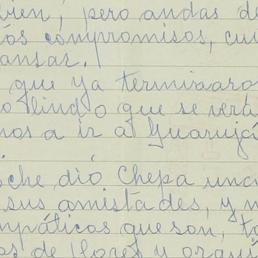 bien, pero andas de
os compromisos, cu
ansas.
que ya terminaro
o lindo que se verá
mos a ir a Guarujá
che dió Chepa una
sus amistades, y
mpáticos que son, to
os de flores y orquí